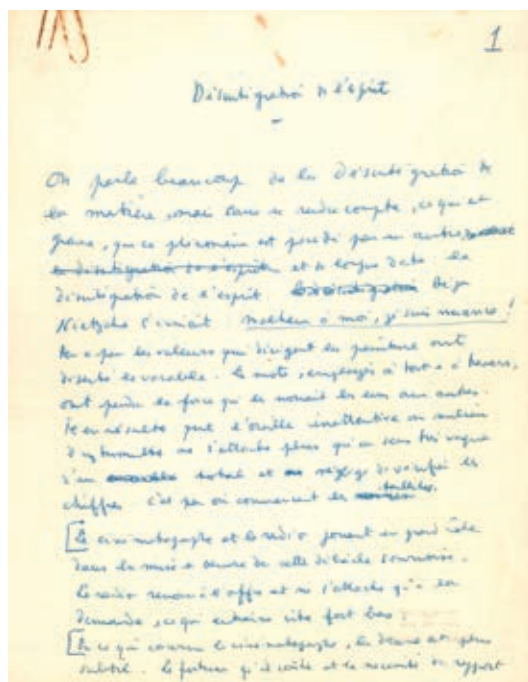 1
Désintégration de l'esprit
On parle beaucoup de la désintégration de
la matière, mais sans se rendre compte, ce qui est
grave, que ce phénomène est précédé par un autre
la désintégration de l'esprit et de longue date la
désintégration de l'esprit. Déjà
Nietzsche s'écriait Malheur à moi, je suis nuance!
les valeurs qui dirigent en peinture ont
déserté le vocable. Les mots, employés à tort et à travers,
ont perdu la force qui les nouait les uns aux autres.
Il en résulte que l'oreille inattentive au milieu
d'un tumulte ne s'attache plus qu'au sens très vague
d'un total et néglige de vérifier les
chiffres. C'est par où commencent les
Le cinématographe et la radio jouent un grand rôle
dans la mise en œuvre de cette débâcle sournoise.
La radio renonce à l'offre et ne s'attache qu'à la
demande, ce qui entraîne vite fort bas
En ce qui concerne le cinématographe, le drame est plus
subtil. La fortune qu'il coûte et la nécessité du rapport